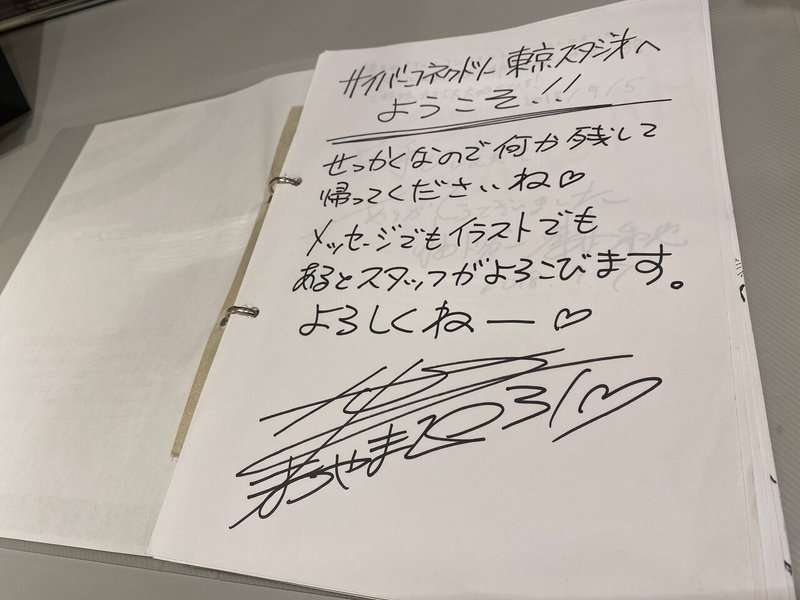 サイバーコネクトツー 東京スタジオへ
ようこそ!!
せっかくなので何か残して
帰ってくださいね♡
メッセージでもイラストでも
あるとスタッフがよろこびます。
よろしくねー♡